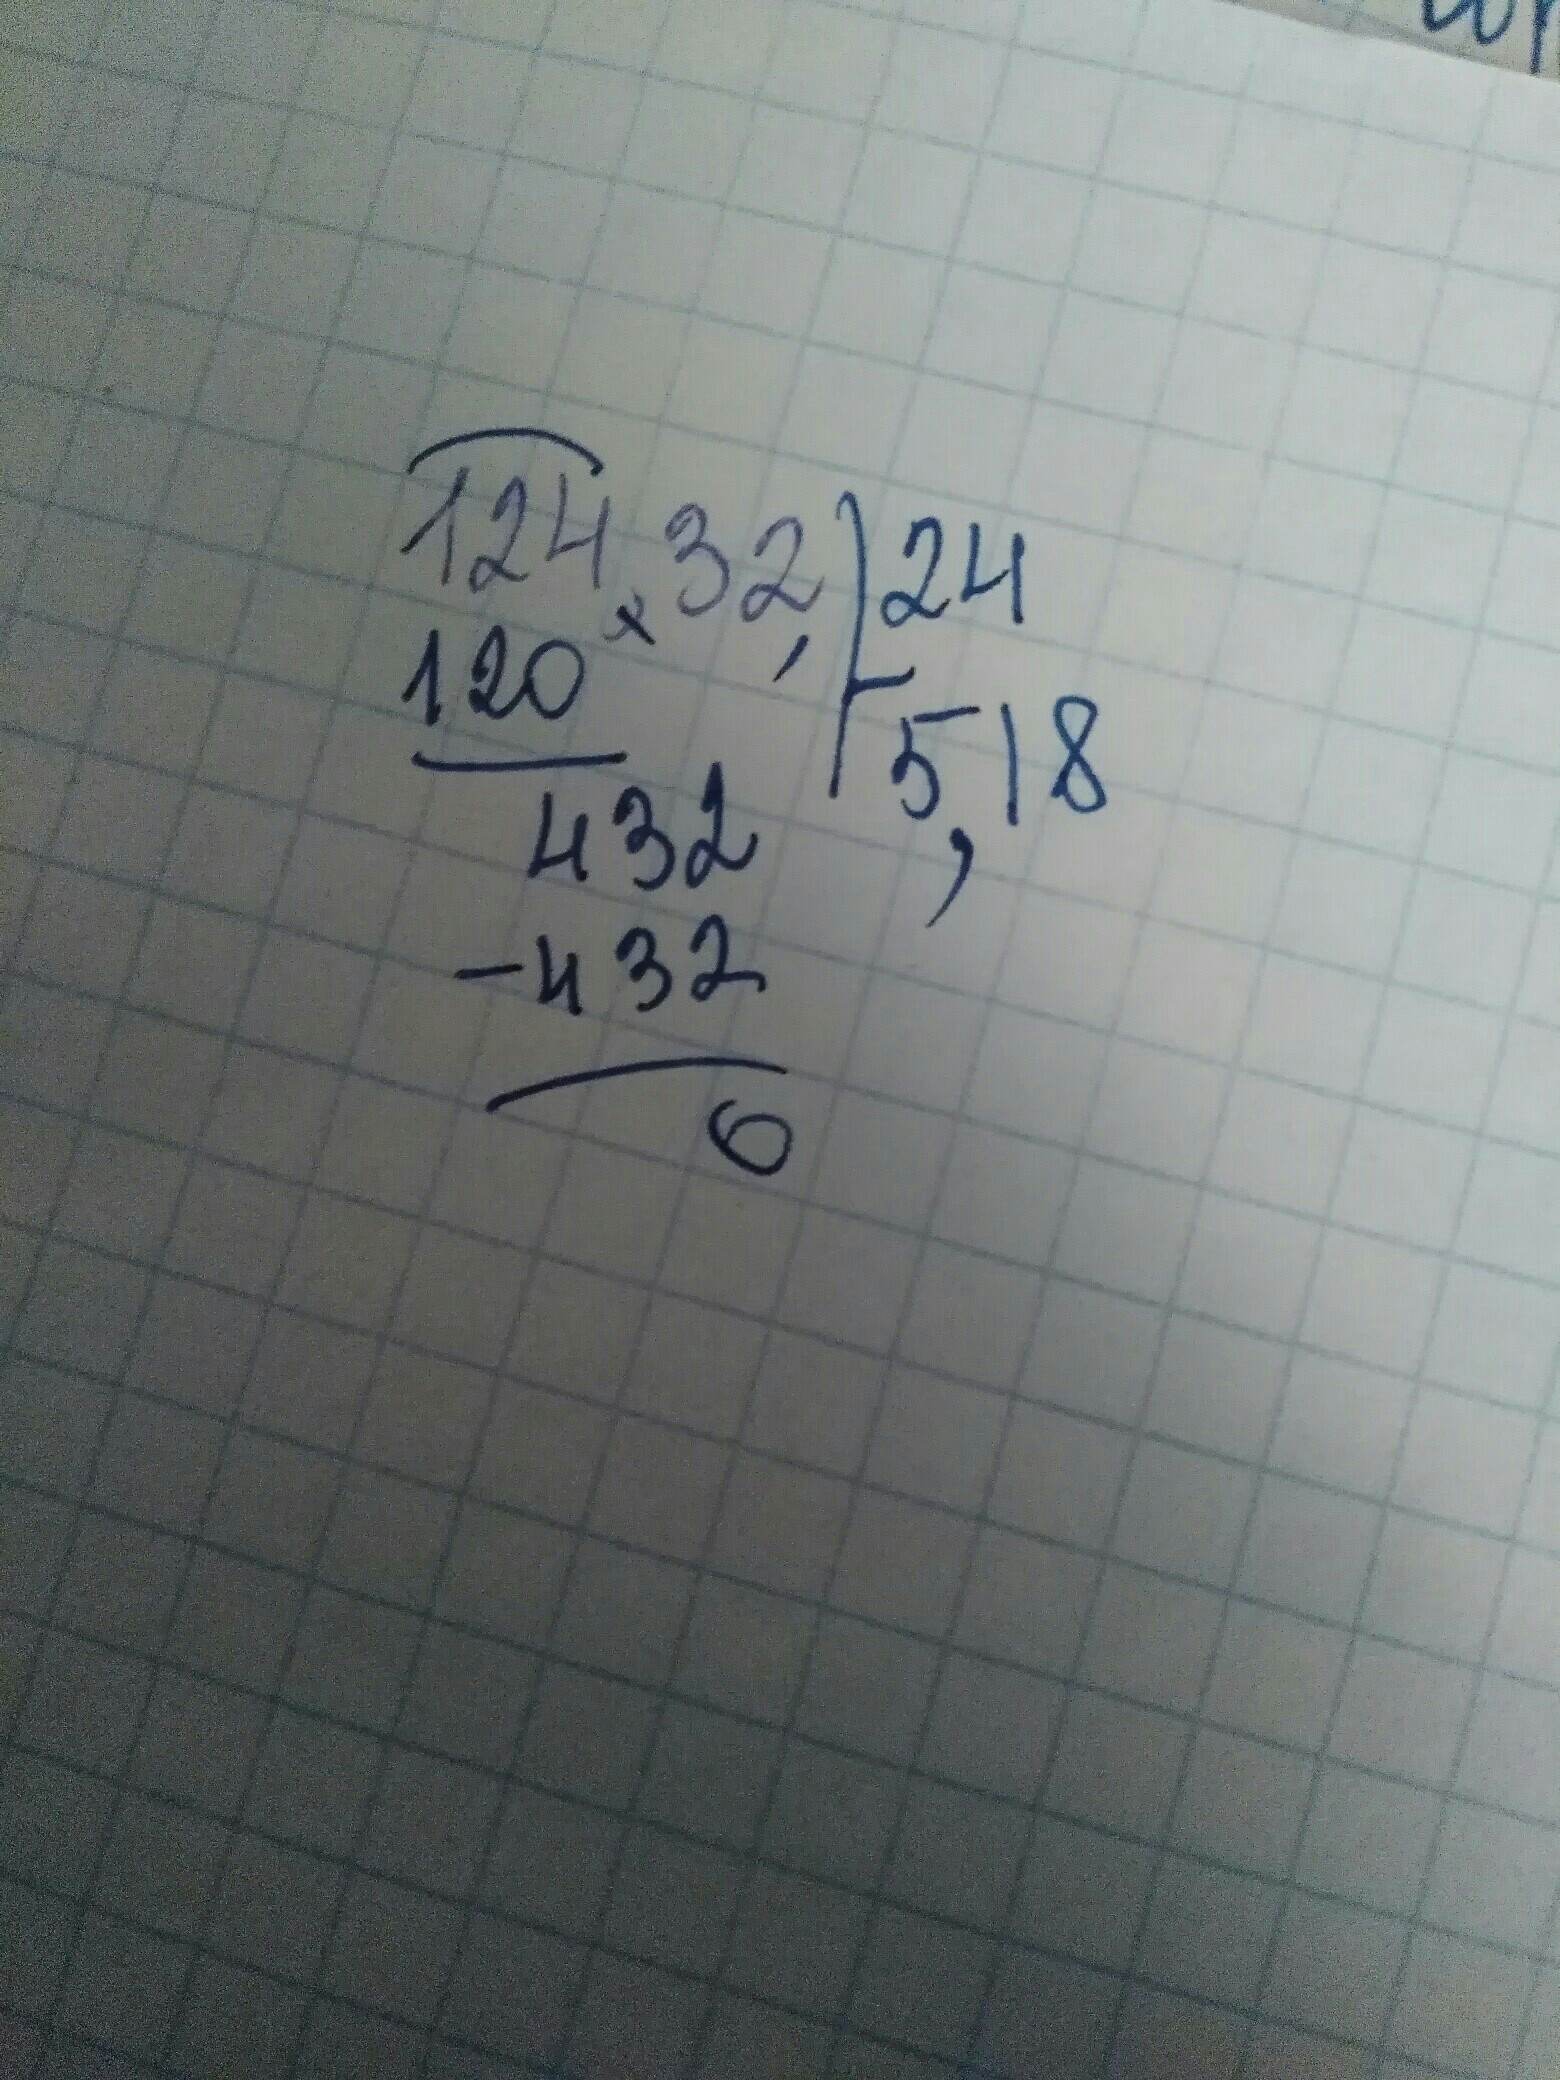 124,32, | 24
120 | 5,18
432
-432
0